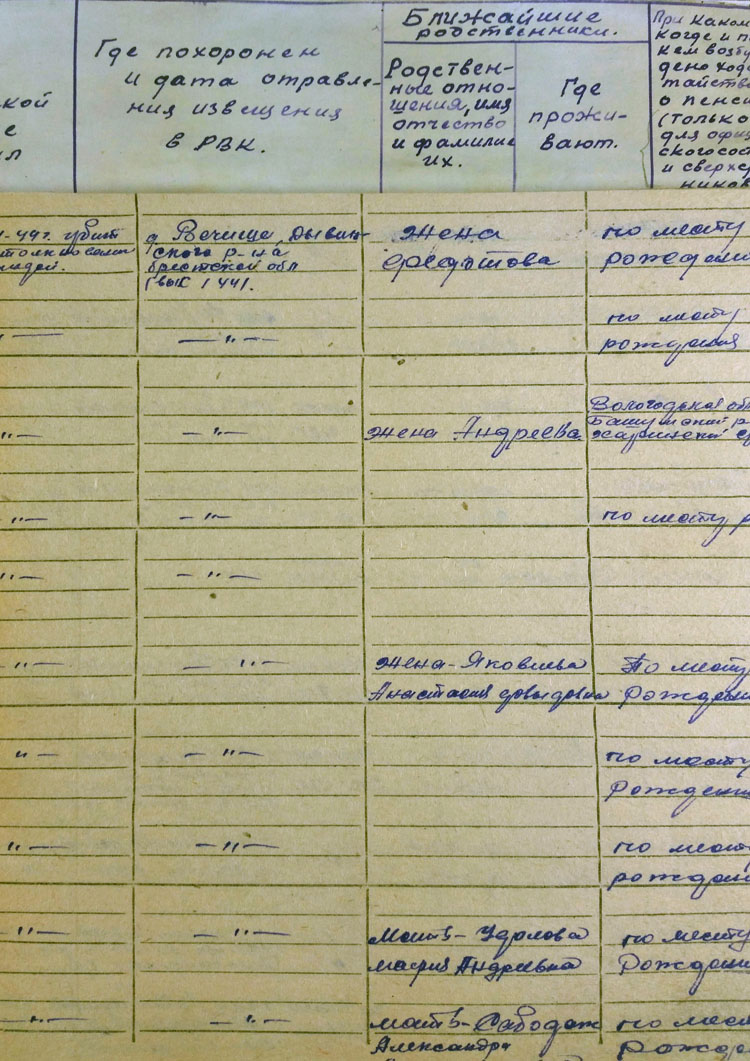 кой
е
л
Где похоронен
и дата отправле-
ния извещения
в РВК.
Ближайшие
родственники.
Родствен-
ные отно-
шения, имя
отчество
и фамилие
их.
Где
прожи-
вают.
При каком
когда и п
кем возбу
дено хода
тайств
о пенси
(только
для офиц
скогосос
и сверхс
ников
44г. убит
д. Речица, Дывин-
ского р-на
брестской обл
жена
по месту
рождения
— „ —
— „ —
по месту
рождения
— „ —
— „ —
жена Андреева
Вологодская об
— „ —
— „ —
по месту р
— „ —
— „ —
— „ —
— „ —
жена - Яковлева
Анастасия Довыдовна
По месту
Рождения
— „ —
— „ —
по месту
Рождения
— „ —
— „ —
по мест
рождени
— „ —
— „ —
Мать -
мария Андреевна
по месту
Рождени
— „ —
— „ —
мать -
Александра
по мест
Рожде